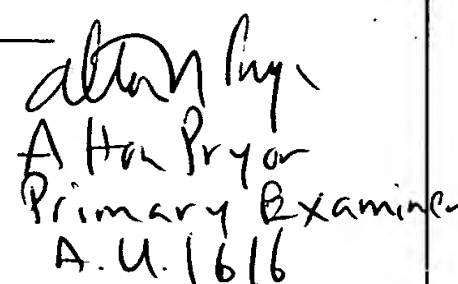 Alton Pryor
Alton Pryor
Primary Examiner
A.U. 1616